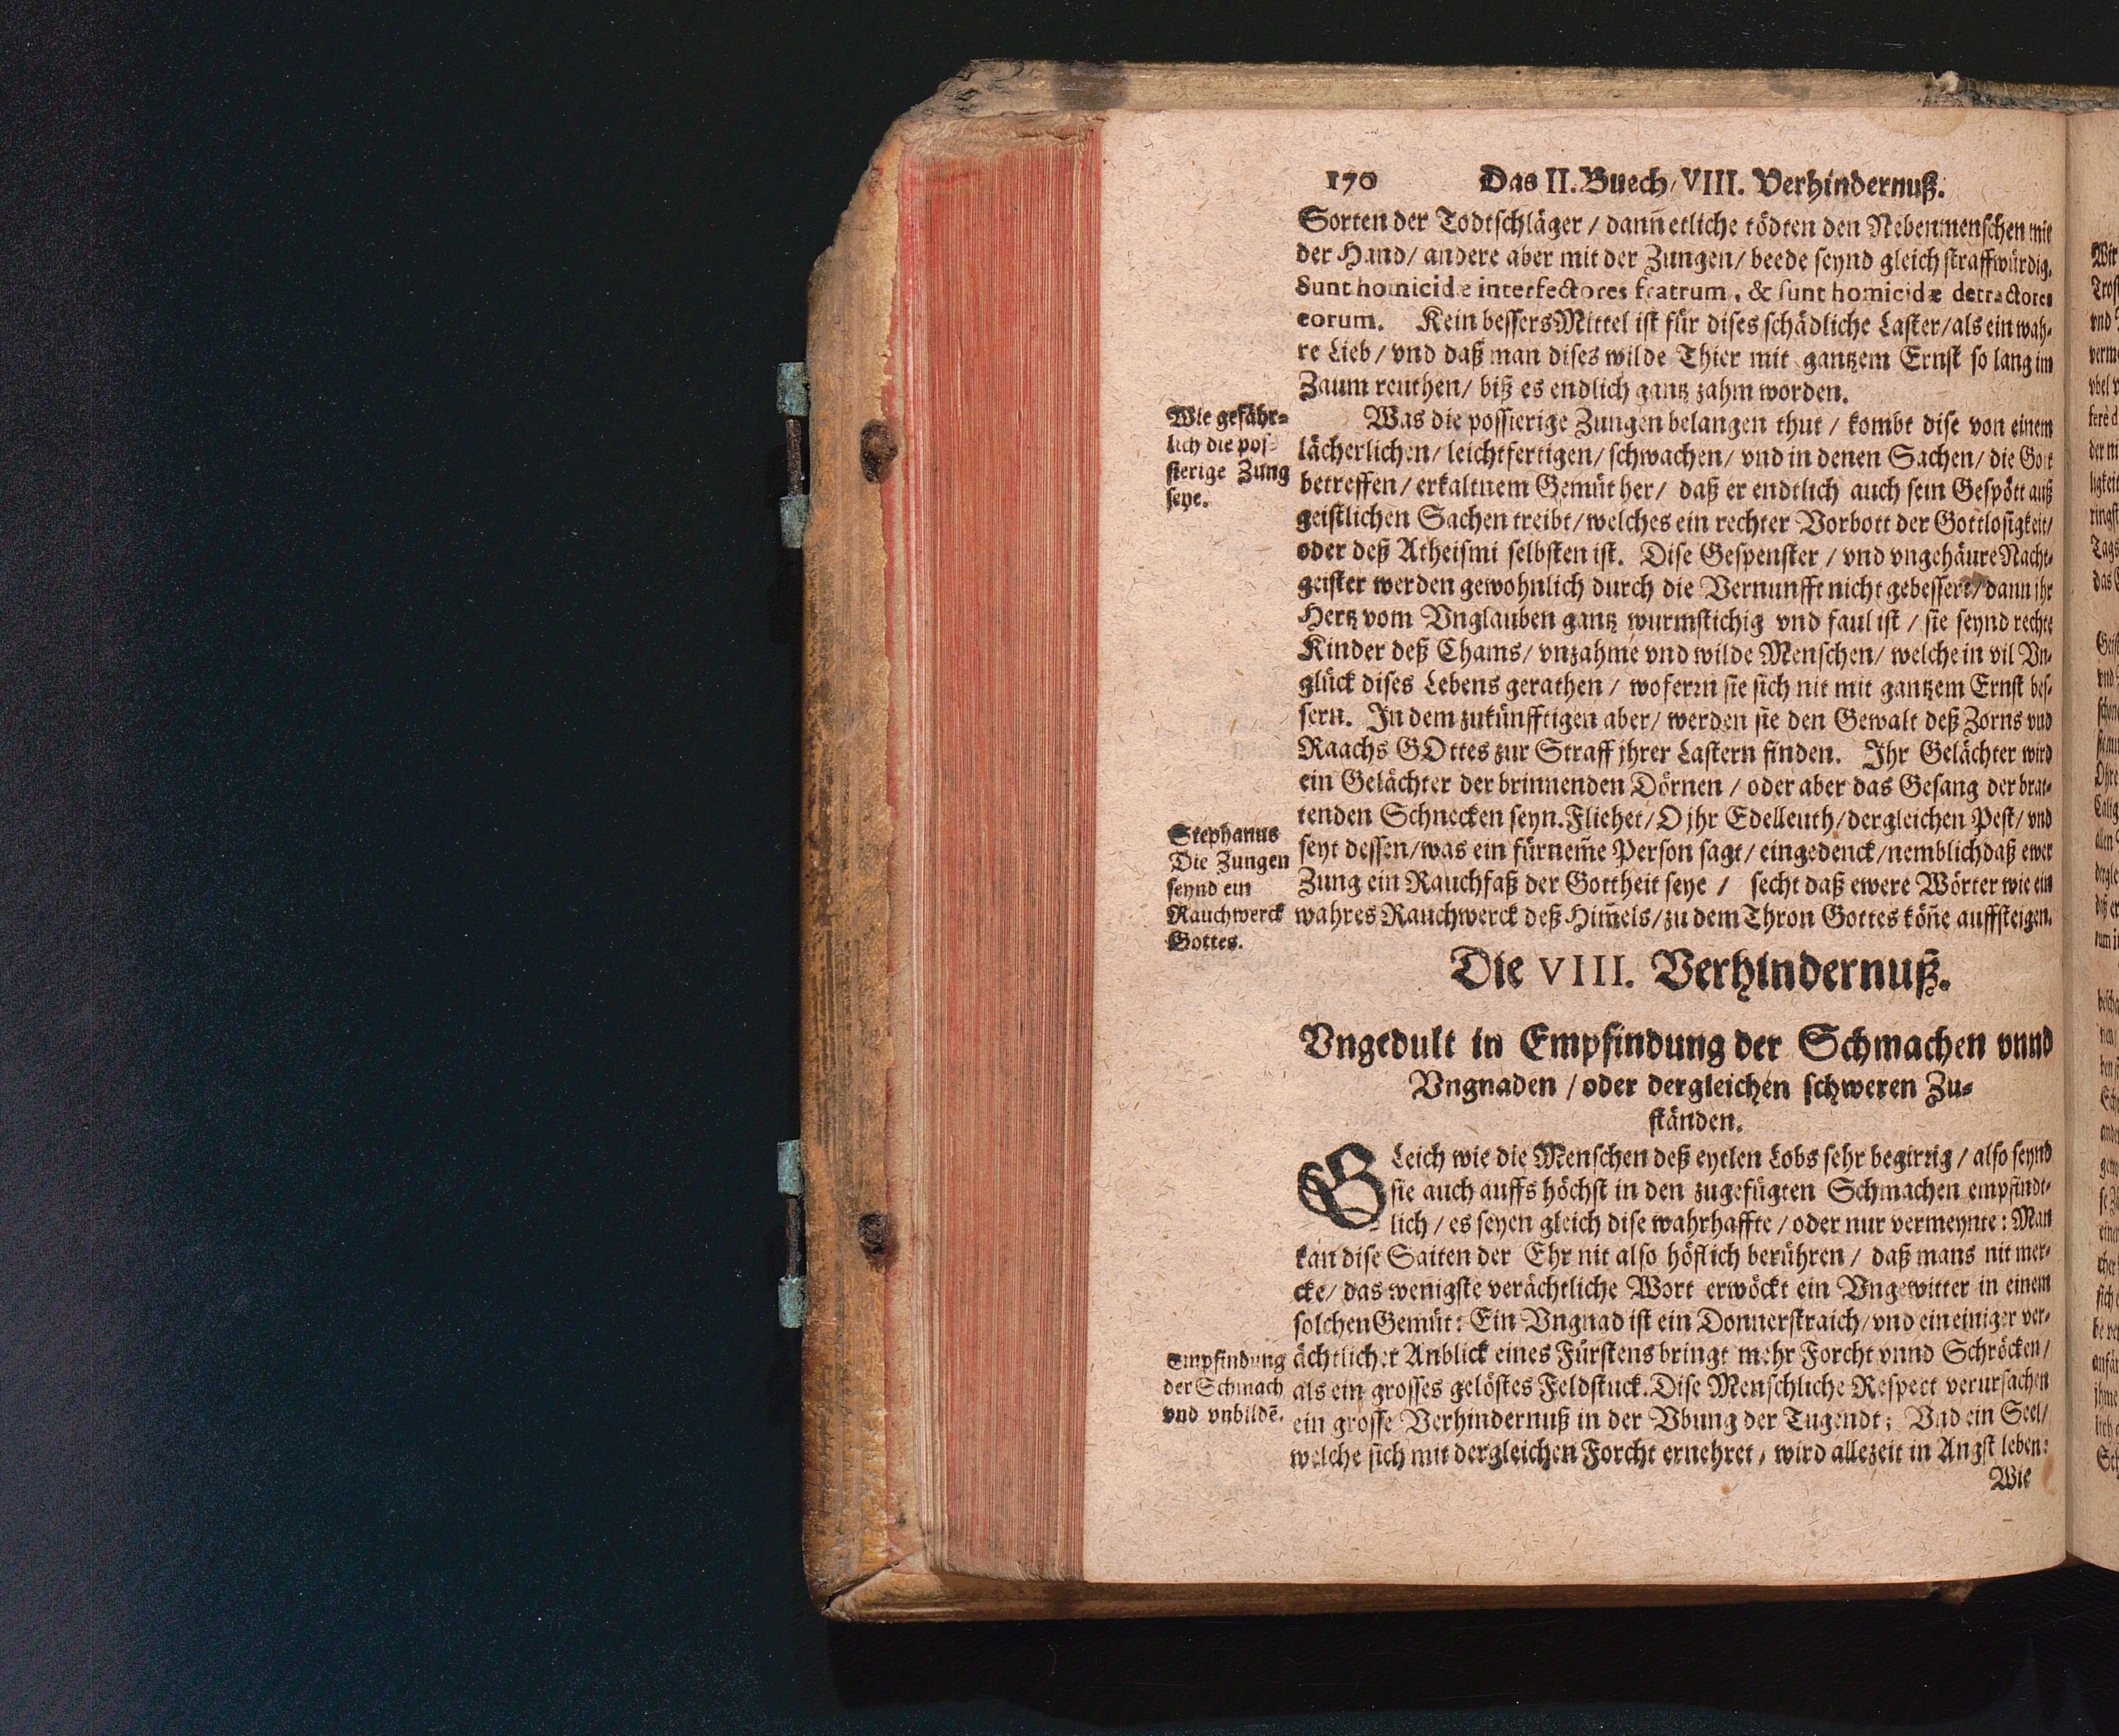 170 Das II. Buech/ VIII. Verhindernuß.
Sorten der Todtschläger / dann̄ etliche tödten den Nebenmenschen mit
der Hand/ andere aber mit der Zungen/ beede seynd gleich straffwürdig.
Sunt homicidæ interfectores fratrum, & sunt homicidæ detractores
eorum. Kein bessers Mittel ist für dises schädliche Laster/als ein wah-
re Lieb/ vnd daß man dises wilde Thier mit gantzem Ernst so lang im
Zaum reuthen/ biß es endlich gantz zahm worden.
Wie gefähr-
lich die pos-
sierige Zung
seye.
Was die possierige Zungen belangen thut / kombt dise von einem
lächerlichen/ leichtfertigen/ schwachen/ vnd in denen Sachen/ die Gott
betreffen/ erkaltnem Gemüther/ daß er endtlich auch sein Gespött auß
geistlichen Sachen treibt/welches ein rechter Vorbott der Gottlosigkeit/
oder deß Atheismi selbsten ist. Dise Gespenster / vnd vngehäure Nacht-
geister werden gewohnlich durch die Vernunfft nicht gebessert/dann jhr
Hertz vom Vnglauben gantz wurmstichig vnd faul ist / sie seynd rechte
Kinder deß Chams/ vnzahme vnd wilde Menschen/ welche in vil Vn-
glück dises Lebens gerathen / woferrn sie sich nit mit gantzem Ernst bes-
sern. In dem zukünfftigen aber/ werden sie den Gewalt deß Zorns vnd
Raachs GOttes zur Straff jhrer Lastern finden. Ihr Gelächter wird
ein Gelächter der brinnenden Dörnen / oder aber das Gesang der brat-
tenden Schnecken seyn. Fliehet/ O jhr Edelleuth/dergleichen Pest/ vnd
seyt dessen/was ein fürnem̄e Person sagt/ eingedenck/nemblich daß ewer
Zung ein Rauchfaß der Gottheit seye / secht daß ewere Wörter wie ein
wahres Rauchwerck deß Him̄els/zu dem Thron Gottes kön̄e auffsteigen.
Stephanus
Die Zungen
seynd ein
Rauchwerck
Gottes.
Die VIII. Verhindernuß.
Vngedult in Empfindung der Schmachen vnnd
Vngnaden / oder dergleichen schweren Zu-
ständen.
GLeich wie die Menschen deß eytlen Lobs sehr begirrig / also seynd
sie auch auffs höchst in den zugefügten Schmachen empfindt-
lich / es seyen gleich dise wahrhaffte / oder nur vermeynte: Man
kan dise Saiten der Ehr nit also höflich berühren / daß mans nit mer-
cke/ das wenigste verächtliche Wort erwöckt ein Vngewitter in einem
solchen Gemüt: Ein Vngnad ist ein Donnerstraich/ vnd ein einiger ver-
ächtlicher Anblick eines Fürstens bringt mehr Forcht vnnd Schröcken/
als ein grosses gelöstes Feldstuck. Dise Menschliche Respect verursachen
ein grosse Verhindernuß in der Vbung der Tugendt; Vnd ein Seel/
welche sich mit dergleichen Forcht ernehret, wird allezeit in Angst leben:
Empfindung
der Schmach
vnd vnbildē.
Wie